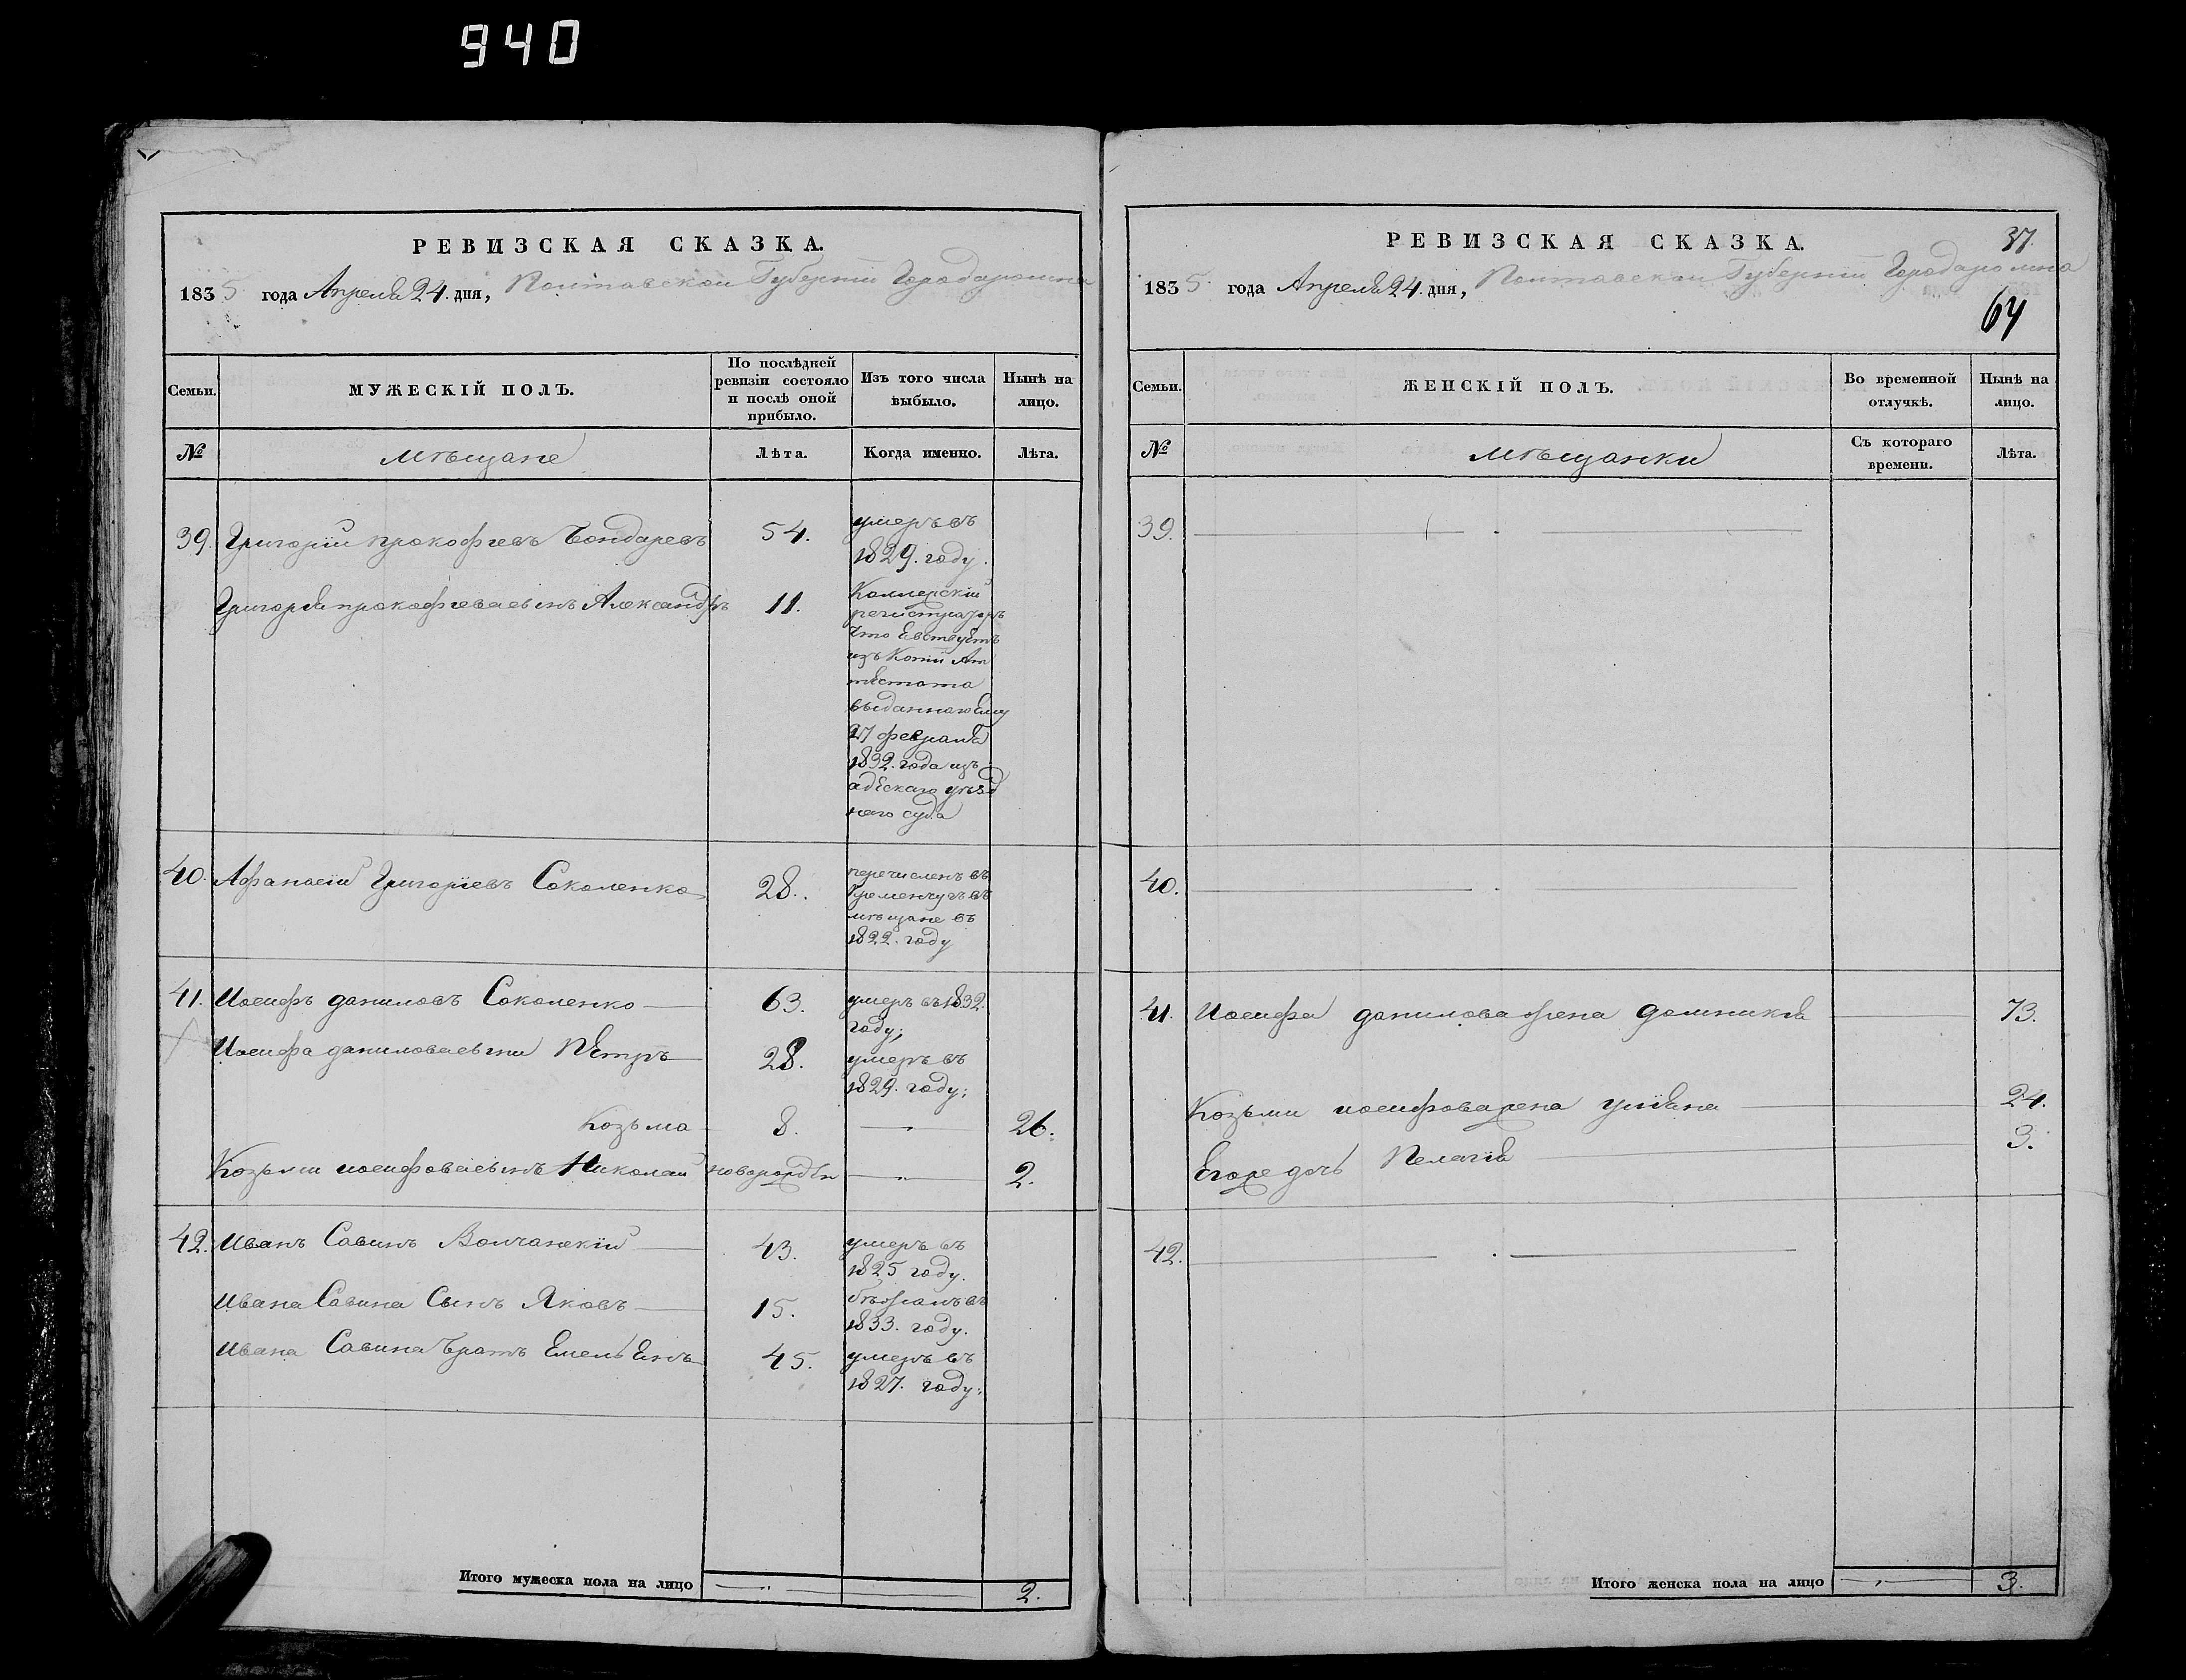 940
РЕВИЗСКАЯ СКАЗКА.
1835 года Апреля 24. дня, Полтавской Губернии Города Ромна
Семьи.
МУЖЕСКІЙ ПОЛЪ.
По послѣдней ревизіи состояло и послѣ оной прибыло.
Изъ того числа выбыло.
Нынѣ на лицо.
№
мѣщане
Лѣта.
Когда именно.
Лѣта.
39. Григорій прокофьевъ Бондаревъ 54. умеръ въ
1829. году.
Григорія прокофьева сынъ Александръ 11. Коллерскій
регистраторъ
что
изъ Копіи Ат
тестата
выданнаго Ему
27 февраля
1832. года изъ
адескаго уѣзд
наго суда
40. Афанасій Григоріевъ Соколенко 28. перечисленъ въ
Кременчугъ въ
мѣщане въ
1822. году
41. Иосифъ даниловъ Соколенко 63. умеръ въ 1832.
году;
Иосифа данилова сыни Петръ 28. умеръ въ
1829. году;
Козьма 8. 26.
Козьми иосифова сынъ Николай новорожден 2.
42. Иванъ Савинъ Волчанскій 43. умеръ въ
1825 году.
Ивана Савина Сынъ Яковъ 15. бѣжалъ въ
1833. году.
Ивана Савина братъ Емельянъ 45. умеръ въ
1827. году;
Итого мужеска пола на лицо 2.
РЕВИЗСКАЯ СКАЗКА. 37.
1835 года Апреля 24. дня, Полтавской Губерніи Города Ромна
64
Семьи.
ЖЕНСКІЙ ПОЛЪ.
Во временной отлучкѣ.
Нынѣ на лицо.
№
мѣщанки
Съ котораго времени.
Лѣта.
39.
40.
41. Иосифа данилова жена домникія 73.
Козьми иосифова жена уліяна 24.
Егоже дочь Пелагія 3.
42.
Итого женска пола на лицо 3.